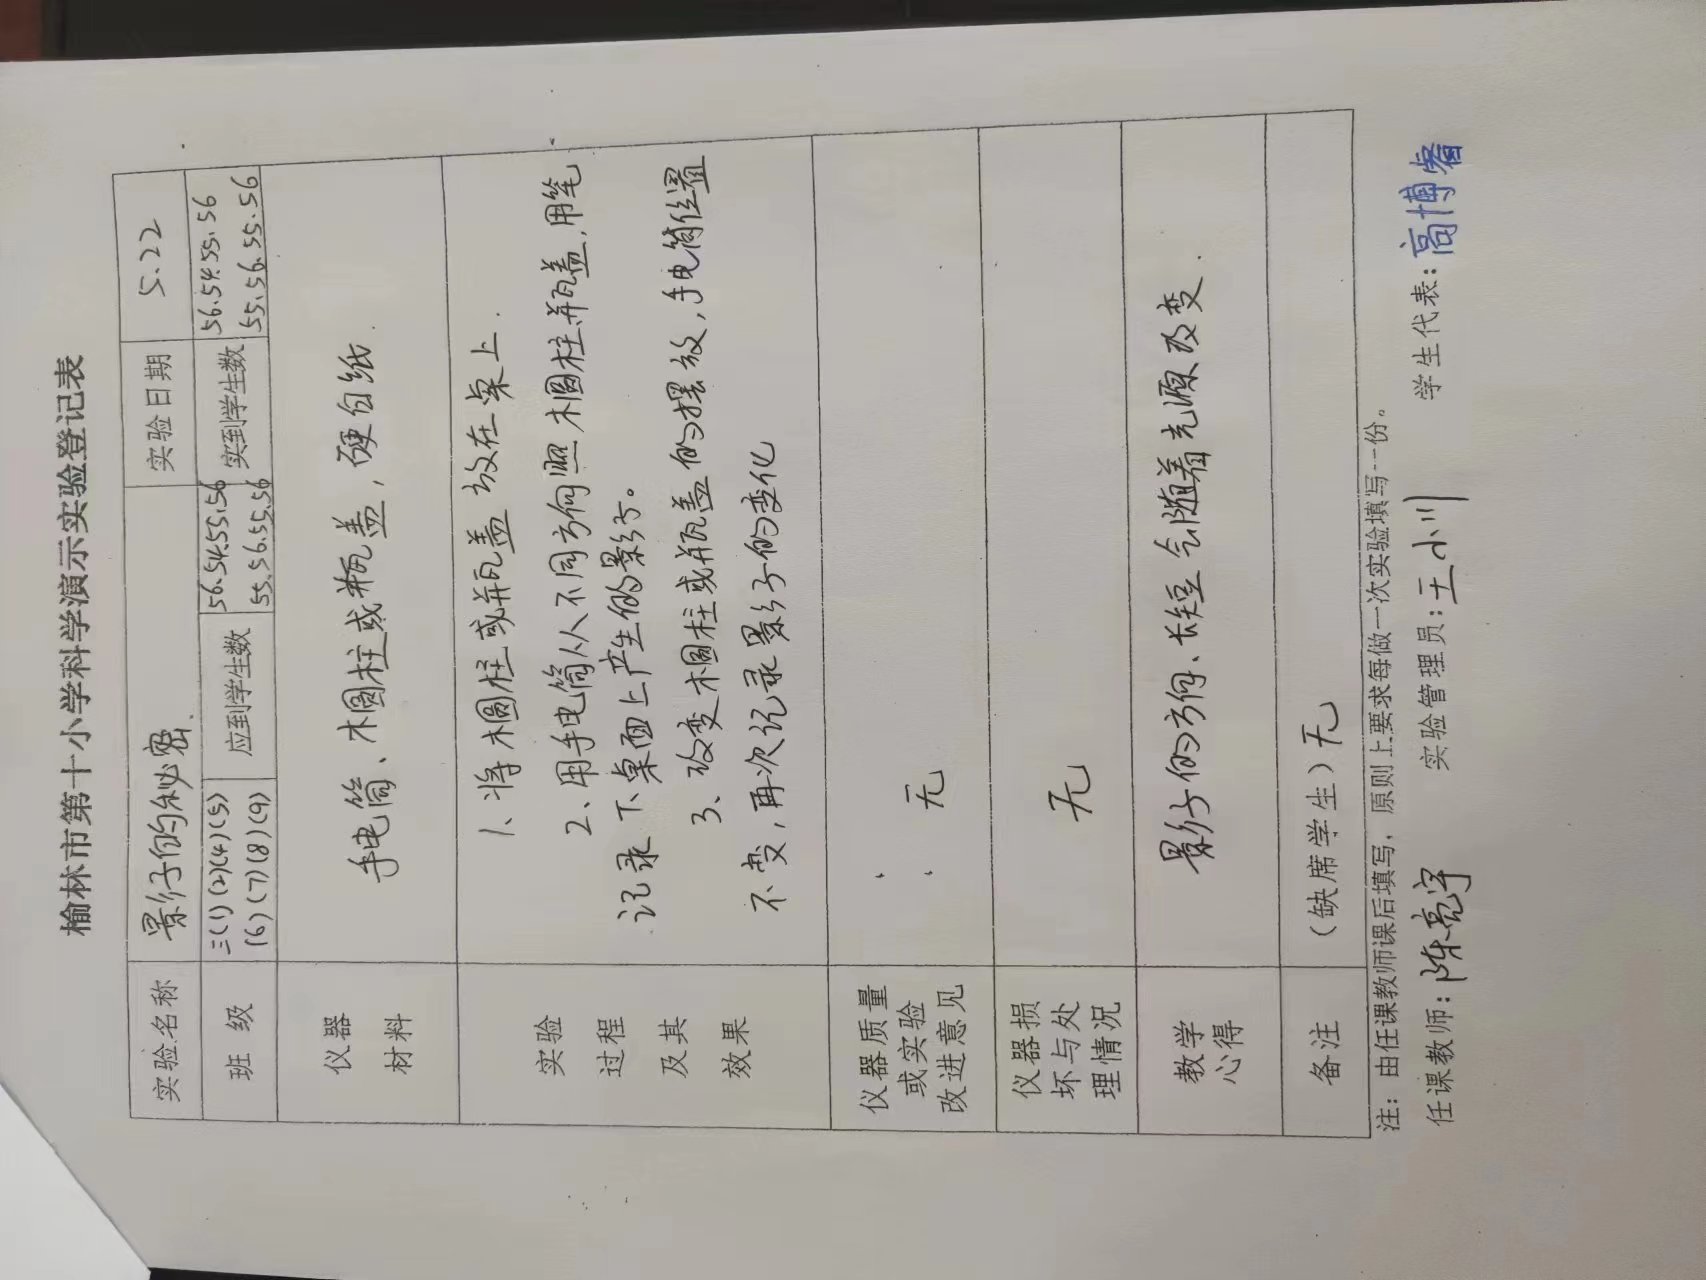 榆林市第十小学科学演示实验登记表
实验名称 影子的秘密. 实验日期 5.22
班 级 三(1)(2)(4)(5) 应到学生数 56.54.55.56 实到学生数 56.54.55.56
(6)(7)(8)(9) 55.56.55.56 55.56.55.56
仪器
材料
手电筒、木圆柱或瓶盖，硬白纸.
实验
过程
及其
效果
1、将木圆柱或瓶盖放在桌上.
2、用手电筒从不同方向照木圆柱瓶盖,用笔
记录下桌面上产生的影子。
3、改变木圆柱或瓶盖的摆放,手电筒位置
不变,再次记录影子的变化
仪器质量
或实验
改进意见
无
仪器损
坏与处
理情况
无
教学
心得
影子的方向、长短会随着光源改变.
备注 （缺席学生）无
注：由任课教师课后填写，原则上要求每做一次实验填写一份。
任课教师：陈亮宇 实验管理员：王小川 学生代表：高博睿